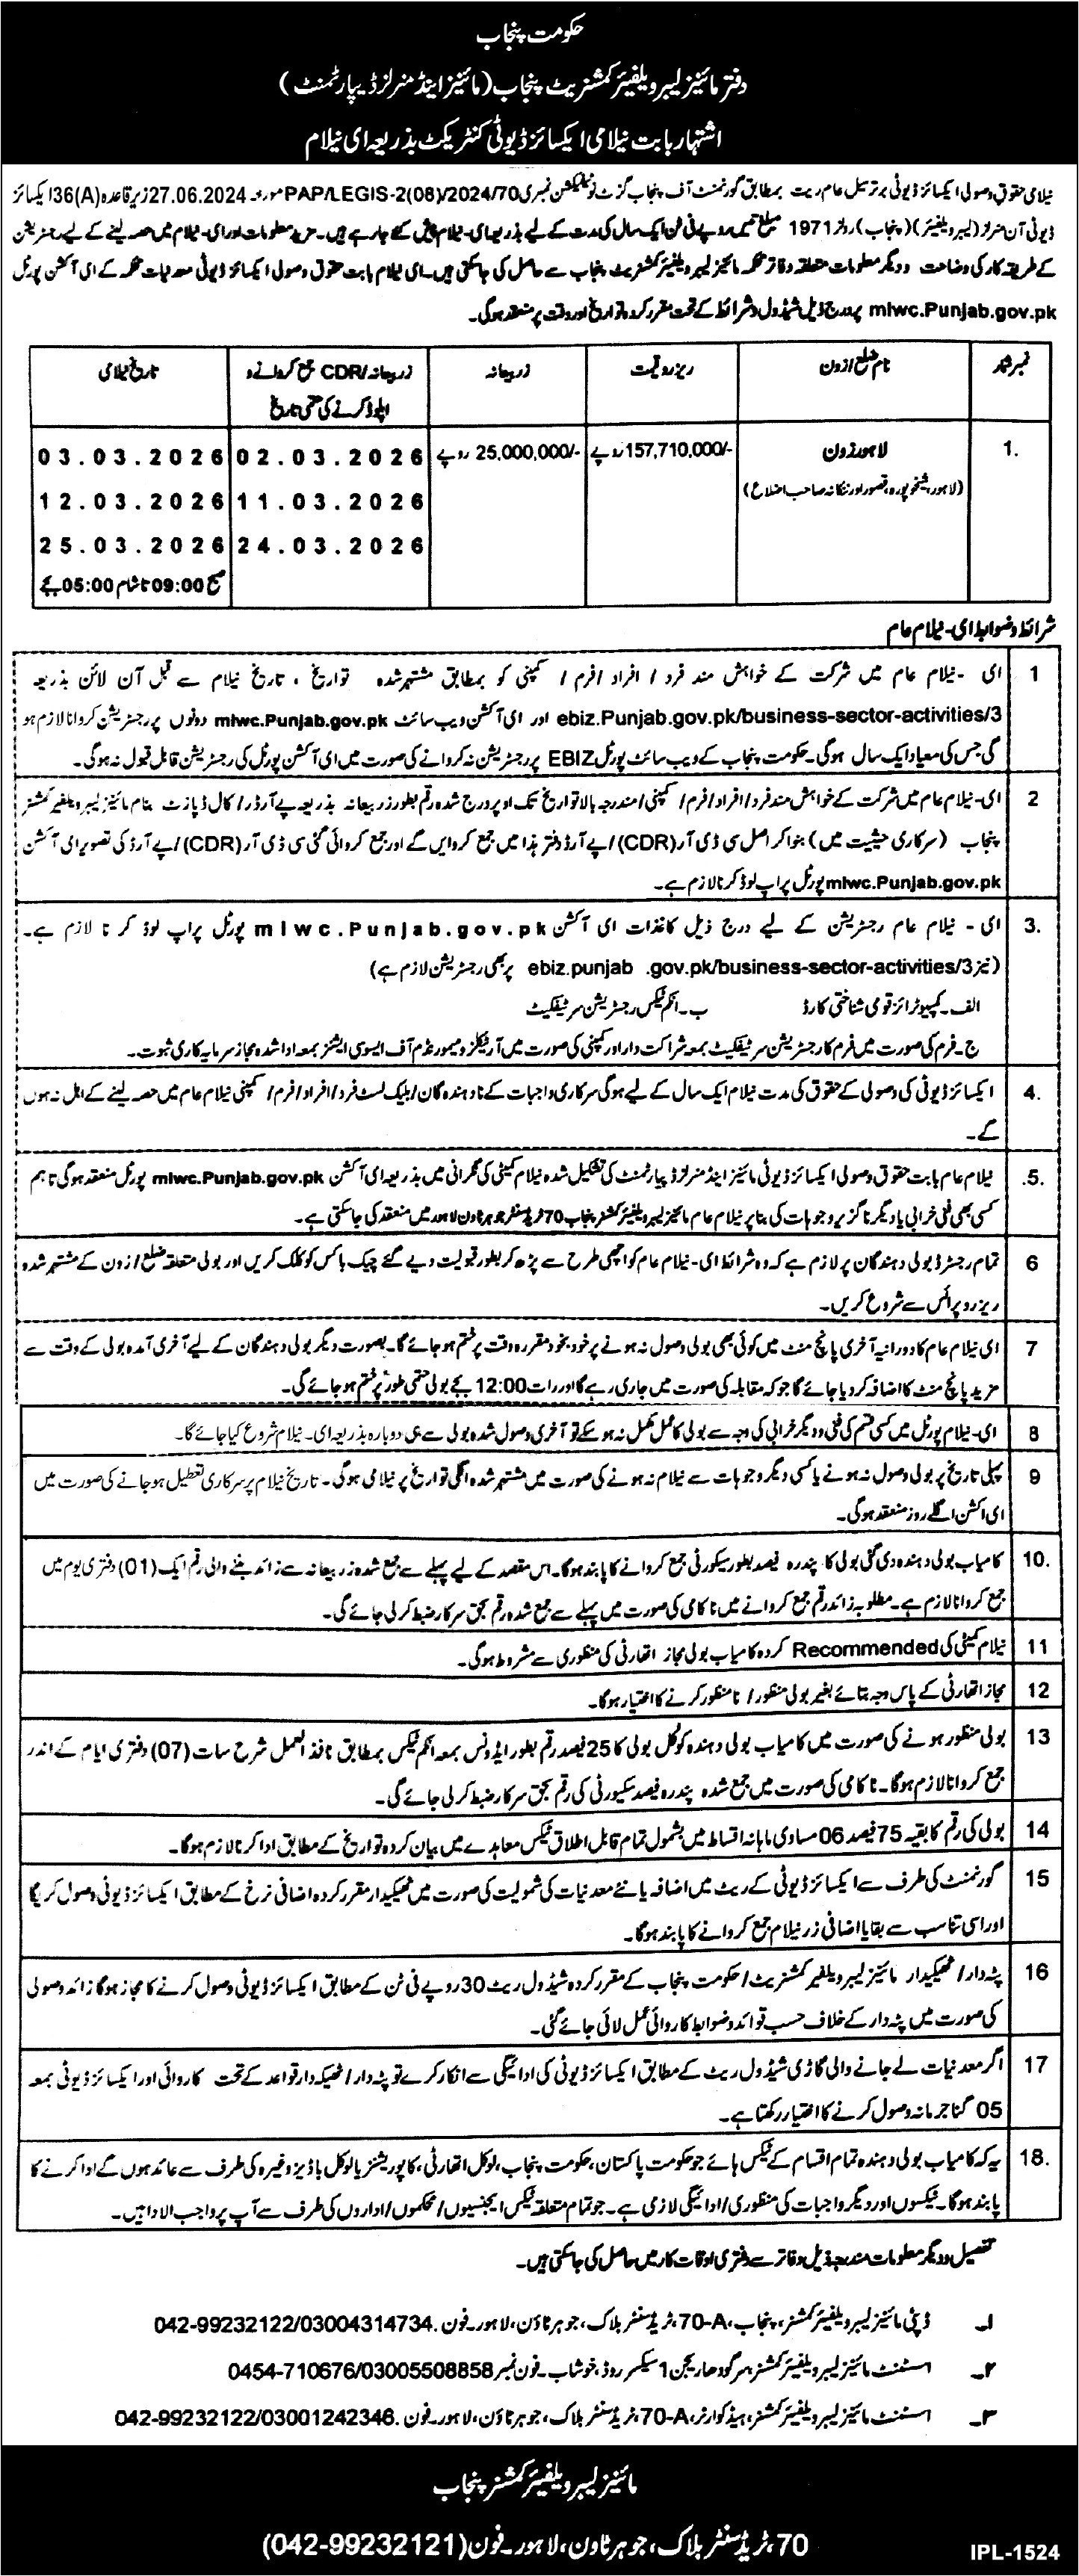 حکومت پنجاب
دفتر مائینز لیبر ویلفیئر کمشنریٹ پنجاب (مائینز اینڈ منرلز ڈیپارٹمنٹ)
اشتہار بابت نیلامی ایکسائز ڈیوٹی کنٹریکٹ بذریعہ ای نیلام
نیلامی حقوق وصولی ایکسائز ڈیوٹی برترسیل عام ریت بمطابق گورنمنٹ آف پنجاب گزٹ نوٹیفکیشن نمبری PAP/LEGIS-2(08)/2024/70 مورخہ 27.06.2024 زیر قاعدہ 36(A) ایکسائز
ڈیوٹی آن منرلز (لیبر ویلفیئر) (پنجاب) رولز 1971 مبلغ تیس روپے فی ٹن ایک سال کی مدت کے لیے بذریعہ ای-نیلام پیش کئے جا رہے ہیں۔ مزید معلومات اور ای-نیلام میں حصہ لینے کے لیے رجسٹریشن
کے طریقہ کار کی وضاحت و دیگر معلومات متعلقہ دفاتر محکمہ مائینز لیبر ویلفیئر کمشنریٹ پنجاب سے حاصل کی جا سکتی ہیں۔ ای نیلام بابت حقوق وصولی ایکسائز ڈیوٹی معدنیات محکمہ کے ای آکشن پورٹل
mlwc.Punjab.gov.pk پر درج ذیل شیڈول و شرائط کے تحت مقرر کردہ تاریخ اور وقت پر منعقد ہوگی۔
نمبر شمار نام ضلع / زون ریزرو قیمت زر بیعانہ زر بیعانہ/CDR جمع کروانے و اپلوڈ کرنے کی حتمی تاریخ تاریخ نیلامی
1. لاہور زون 157,710,000/- روپے 25,000,000/- روپے 02.03.2026 03.03.2026
(لاہور، شیخوپورہ، قصور اور ننکانہ صاحب اضلاع) 11.03.2026 12.03.2026
24.03.2026 25.03.2026
صبح 09:00 تا شام 05:00 بجے
شرائط و ضوابط ای-نیلام عام
1 ای-نیلام عام میں شرکت کے خواہش مند فرد / افراد / فرم / کمپنی کو بمطابق مشتہر شدہ تواریخ، تاریخ نیلام سے قبل آن لائن بذریعہ
ebiz.Punjab.gov.pk/business-sector-activities/3 اور ای آکشن ویب سائٹ mlwc.Punjab.gov.pk دونوں پر رجسٹریشن کروانا لازم ہو
گی جس کی معیاد ایک سال ہوگی۔ حکومت پنجاب کے ویب سائٹ پورٹل EBIZ پر رجسٹریشن نہ کروانے کی صورت میں ای آکشن پورٹل کی رجسٹریشن قابل قبول نہ ہوگی۔
2 ای-نیلام عام میں شرکت کے خواہش مند فرد / افراد / فرم / کمپنی / مندرجہ بالا تواریخ تک اوپر درج شدہ رقم بطور زر بیعانہ بذریعہ پے آرڈر / کال ڈپازٹ بنام مائینز لیبر ویلفیئر کمشنر
پنجاب (سرکاری حیثیت میں) بنوا کر اصل سی ڈی آر (CDR) / پے آرڈر دفتر ہذا میں جمع کروائیں گے اور جمع کروائی گئی سی ڈی آر (CDR) / پے آرڈ کی تصویر ای آکشن
mlwc.Punjab.gov.pk پورٹل پر اپ لوڈ کرنا لازم ہے۔
3. ای - نیلام عام رجسٹریشن کے لیے درج ذیل کاغذات ای آکشن mlwc.Punjab.gov.pk پورٹل پر اپ لوڈ کرنا لازم ہے۔
(نیز ebiz.punjab .gov.pk/business-sector-activities/3 پر بھی رجسٹریشن لازم ہے)
الف۔ کمپیوٹرائز قومی شناختی کارڈ ب۔ انکم ٹیکس رجسٹریشن سرٹیفکیٹ
ج۔ فرم کی صورت میں فرم کا رجسٹریشن سرٹیفکیٹ بمعہ شراکت دار اور کمپنی کی صورت میں آرٹیکلز و میمورنڈم آف ایسوسی ایشنز بمعہ ادا شدہ مجاز سرمایہ کاری ثبوت۔
4. ایکسائز ڈیوٹی کی وصولی کے حقوق کی مدت نیلام ایک سال کے لیے ہوگی سرکاری واجبات کے نادہندہ گان / بلیک لسٹ فرد / افراد / فرم / کمپنی نیلام عام میں حصہ لینے کے اہل نہ ہوں
گے۔
5. نیلام عام بابت حقوق وصولی ایکسائز ڈیوٹی مائینز اینڈ منرلز ڈیپارٹمنٹ کی تشکیل شدہ نیلام کمیٹی کی نگرانی میں بذریعہ ای آکشن mlwc.Punjab.gov.pk پورٹل منعقد ہوگی تاہم
کسی بھی فنی خرابی یا دیگر ناگزیر وجوہات کی بنا پر نیلام عام مائینز لیبر ویلفیئر کمشنر پنجاب 70 ٹریڈ سنٹر جوہر ٹاون لاہور میں منعقد کی جا سکتی ہے۔
6 تمام رجسٹرڈ بولی دہندگان پر لازم ہے کہ وہ شرائط ای-نیلام عام کو اچھی طرح سے پڑھ کر بطور قبولیت دیے گئے چیک باکس کو کلک کریں اور بولی متعلقہ ضلع / زون کے مشتہر شدہ
ریزرو پرائس سے شروع کریں۔
7 ای نیلام عام کا دورانیہ آخری پانچ منٹ میں کوئی بھی بولی وصول نہ ہونے پر خود بخود مقررہ وقت پر ختم ہو جائے گا۔ بصورت دیگر بولی دہندگان کے لیے آخری آمدہ بولی کے وقت سے
مزید پانچ منٹ کا اضافہ کر دیا جائے گا جو کہ مقابلہ کی صورت میں جاری رہے گا اور رات 12:00 بجے بولی حتمی طور پر ختم ہو جائے گی۔
8 ای-نیلام پورٹل میں کسی قسم کی فنی و دیگر خرابی کی وجہ سے بولی کا عمل مکمل نہ ہو سکے تو آخری وصول شدہ بولی سے ہی دوبارہ بذریعہ ای-نیلام شروع کیا جائے گا۔
9 پہلی تاریخ پر بولی وصول نہ ہونے یا کسی دیگر وجوہات سے نیلام نہ ہونے کی صورت میں مشتہر شدہ اگلی تواریخ پر نیلامی ہوگی۔ تاریخ نیلام پر سرکاری تعطیل ہو جانے کی صورت میں
ای اکشن اگلے روز منعقد ہوگی۔
10. کامیاب بولی دہندہ دی گئی بولی کا پندرہ فیصد بطور سیکورٹی جمع کروانے کا پابند ہوگا۔ اس مقصد کے لیے پہلے سے جمع شدہ زر بیعانہ سے زائد بننے والی رقم ایک (01) دفتری یوم میں
جمع کروانا لازم ہے۔ مطلوبہ زائد رقم جمع کروانے میں ناکامی کی صورت میں پہلے سے جمع شدہ رقم بحق سرکار ضبط کر لی جائے گی۔
11 نیلام کمیٹی کی Recommended کردہ کامیاب بولی مجاز اتھارٹی کی منظوری سے مشروط ہوگی۔
12 مجاز اتھارٹی کے پاس وجہ بتائے بغیر بولی منظور / نامنظور کرنے کا اختیار ہوگا۔
13 بولی منظور ہونے کی صورت میں کامیاب بولی دہندہ کو کل بولی کا 25 فیصد رقم بطور ایڈونس بمعہ انکم ٹیکس بمطابق نافذ العمل شرح سات (07) دفتری ایام کے اندر
جمع کروانا لازم ہوگا۔ ناکامی کی صورت میں جمع شدہ پندرہ فیصد سیکورٹی کی رقم بحق سرکار ضبط کر لی جائے گی۔
14 بولی کی رقم کا بقیہ 75 فیصد 06 مساوی ماہانہ اقساط میں بشمول تمام قابل اطلاق ٹیکس معاہدے میں بیان کردہ تواریخ کے مطابق ادا کرنا لازم ہوگا۔
15 گورنمنٹ کی طرف سے ایکسائز ڈیوٹی کے ریٹ میں اضافہ یا نئے معدنیات کی شمولیت کی صورت میں ٹھیکیدار مقرر کردہ اضافی نرخ کے مطابق ایکسائز ڈیوٹی وصول کریگا
اور اسی تناسب سے بقایا اضافی زر نیلام جمع کروانے کا پابند ہوگا۔
16 پٹہ دار / ٹھیکیدار مائینز لیبر ویلفیر کمشنریٹ / حکومت پنجاب کے مقرر کردہ شیڈول ریٹ 30 روپے فی ٹن کے مطابق ایکسائز ڈیوٹی وصول کرنے کا مجاز ہوگا زائد وصولی
کی صورت میں پٹہ دار کے خلاف حسب قوائد و ضوابط کاروائی عمل لائی جائے گی۔
17 اگر معدنیات لے جانے والی گاڑی شیڈول ریٹ کے مطابق ایکسائز ڈیوٹی کی ادائیگی سے انکار کرے تو پٹہ دار / ٹھیکہ دار قواعد کے تحت کاروائی اور ایکسائز ڈیوٹی بمعہ
05 گنا جرمانہ وصول کرنے کا اختیار رکھتا ہے۔
18. یہ کہ کامیاب بولی دہندہ تمام اقسام کے ٹیکس ہائے جو حکومت پاکستان، حکومت پنجاب، لوکل اتھارٹی، کارپوریشنز یا لوکل باڈیز وغیرہ کی طرف سے عائد ہوں گے ادا کرنے کا
پابند ہوگا۔ ٹیکسوں اور دیگر واجبات کی منظوری / ادائیگی لازمی ہے۔ جو تمام متعلقہ ٹیکس ایجنسیوں / محکموں / اداروں کی طرف سے آپ پر واجب الادا ہیں۔
تفصیل و دیگر معلومات مندرجہ ذیل دفاتر سے دفتری اوقات کار میں حاصل کی جا سکتی ہیں۔
۱۔ ڈپٹی مائینز لیبر ویلفیئر کمشنر، پنجاب، 70-A، ٹریڈ سنٹر بلاک، جوہر ٹاؤن، لاہور۔ فون .042-99232122/03004314734
۲۔ اسسٹنٹ مائینز لیبر ویلفیئر کمشنر سرگودھا ریجن 1 سیکسر روڈ، خوشاب۔ فون نمبر 0454-710676/03005508858
۳۔ اسسٹنٹ مائینز لیبر ویلفیئر کمشنر، ہیڈ کوارٹر، 70-A، ٹریڈ سنٹر بلاک، جوہر ٹاؤن، لاہور۔ فون .042-99232122/03001242346
مائینز لیبر ویلفیئر کمشنر پنجاب
70، ٹریڈ سنٹر بلاک، جوہر ٹاون، لاہور۔ فون (042-99232121)
IPL-1524